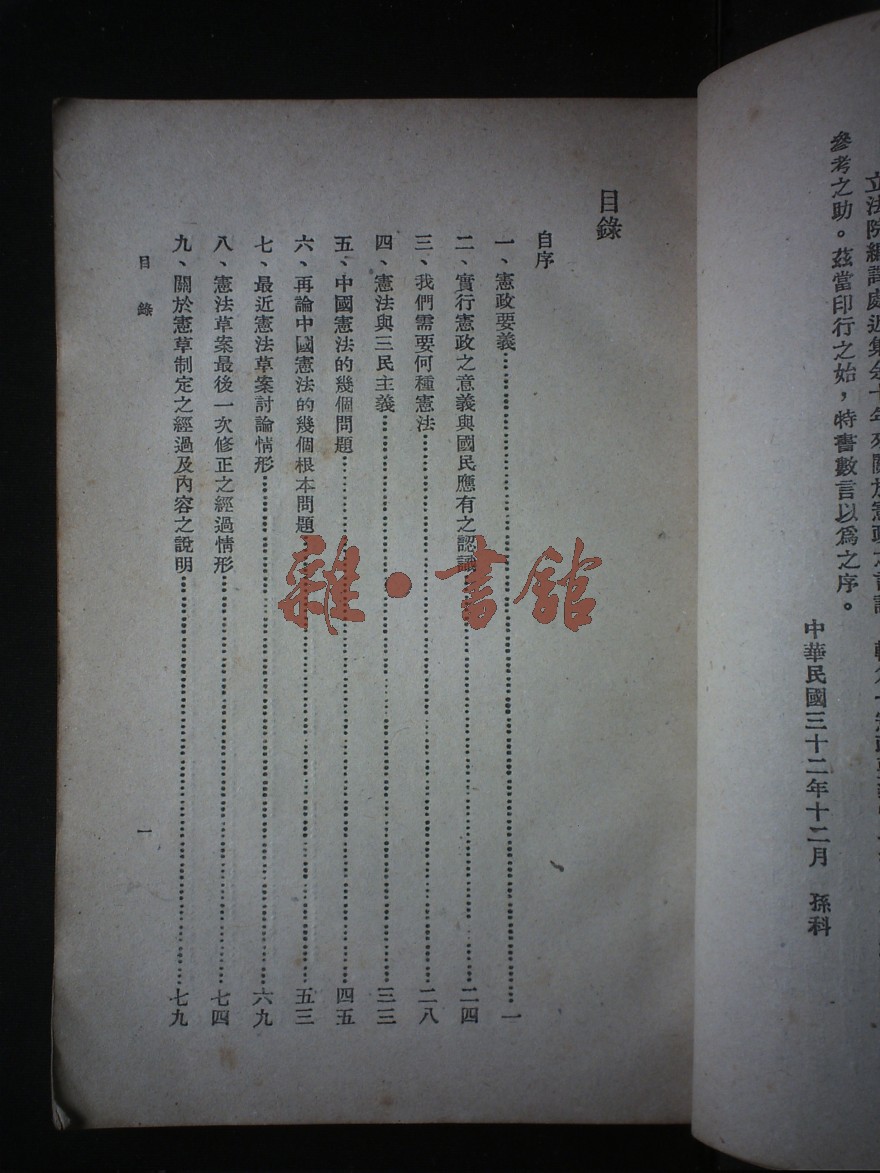 立法院編譯處近集余十年來關於憲政之言論
參考之助。茲當印行之始，特書數言以爲之序。
中華民國三十二年十二月　孫科
目錄
自序
一、憲政要義……一
二、實行憲政之意義與國民應有之認識……二四
三、我們需要何種憲法……二八
四、憲法與三民主義……三三
五、中國憲法的幾個問題……四五
六、再論中國憲法的幾個根本問題……五三
七、最近憲法草案討論情形……六九
八、憲法草案最後一次修正之經過情形……七四
九、關於憲草制定之經過及內容之說明……七九
目錄
一
雜·書館